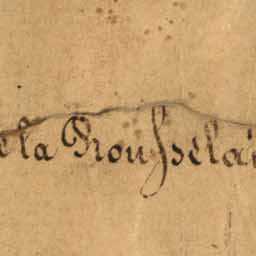 ela Rousselai